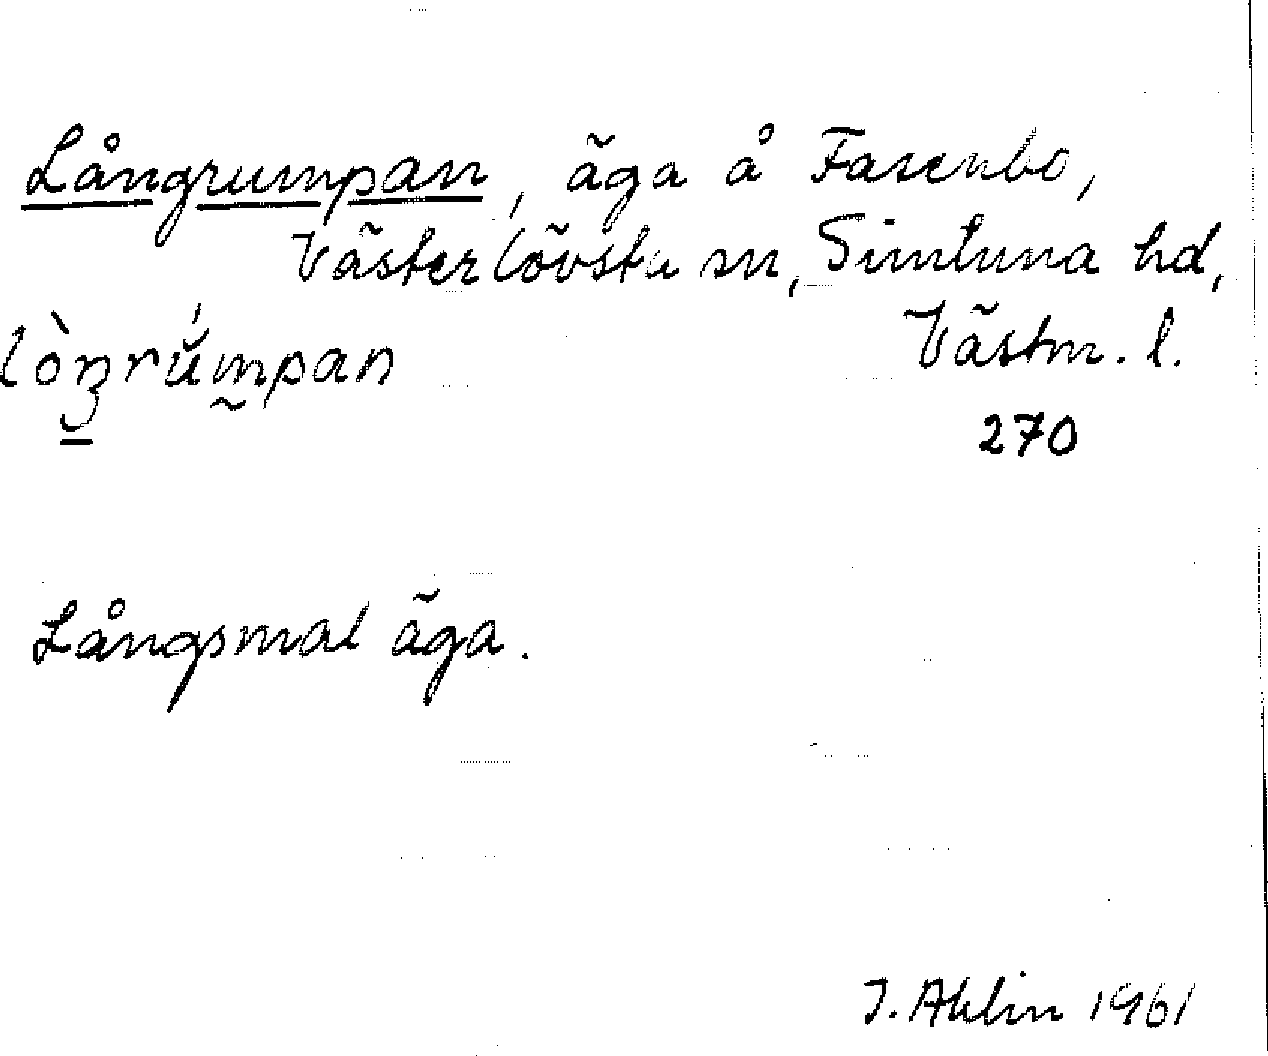 Långrumpan, äga å Fasenbo,
Västerlövsta sn, Simtuna hd,
Västm. l.
lòŋrúmpan
270
Långsmal äga.
J. Ahlin 1961